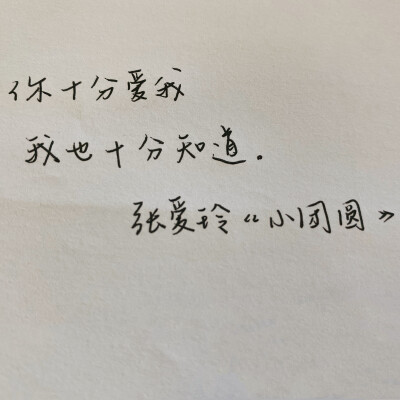 你十分爱我
我也十分知道。
张爱玲《小团圆》